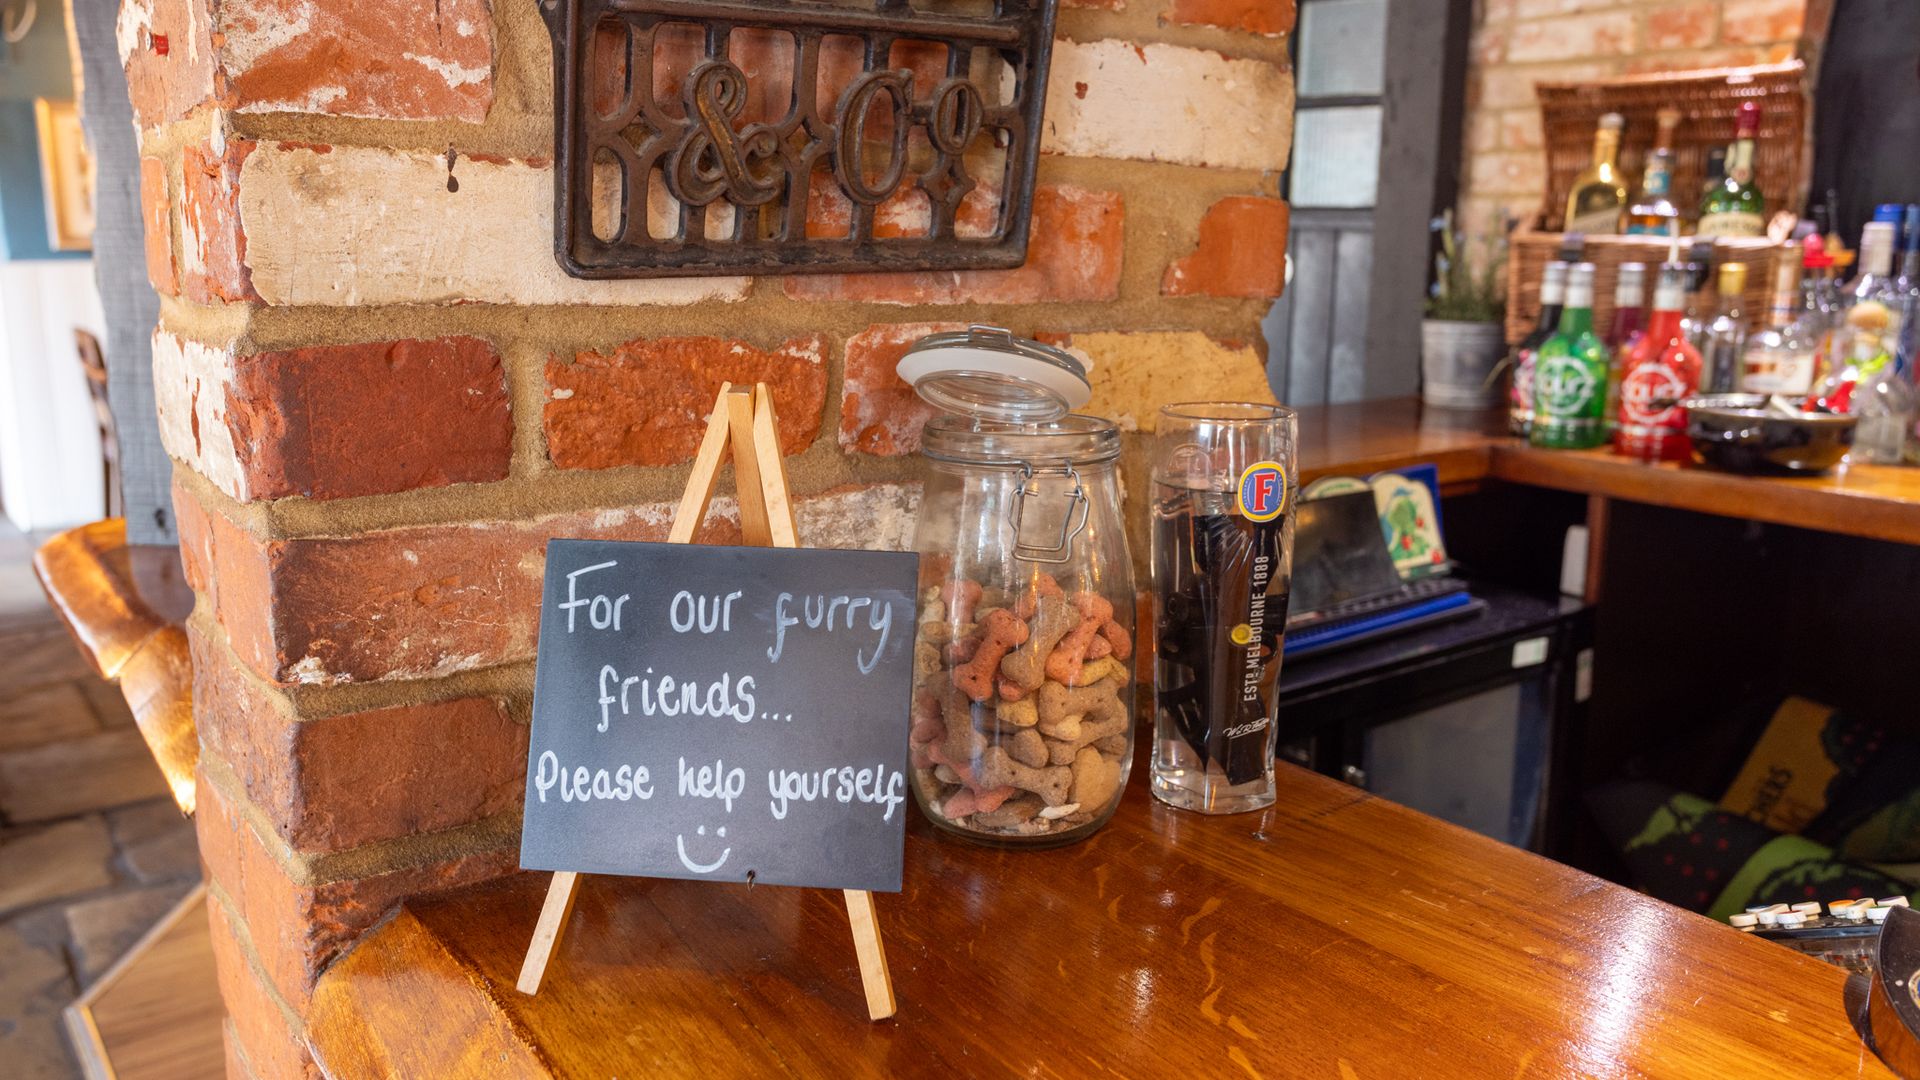 & Co
For our furry
friends...
Please help yourself
F
ESTD MELBOURNE 1888